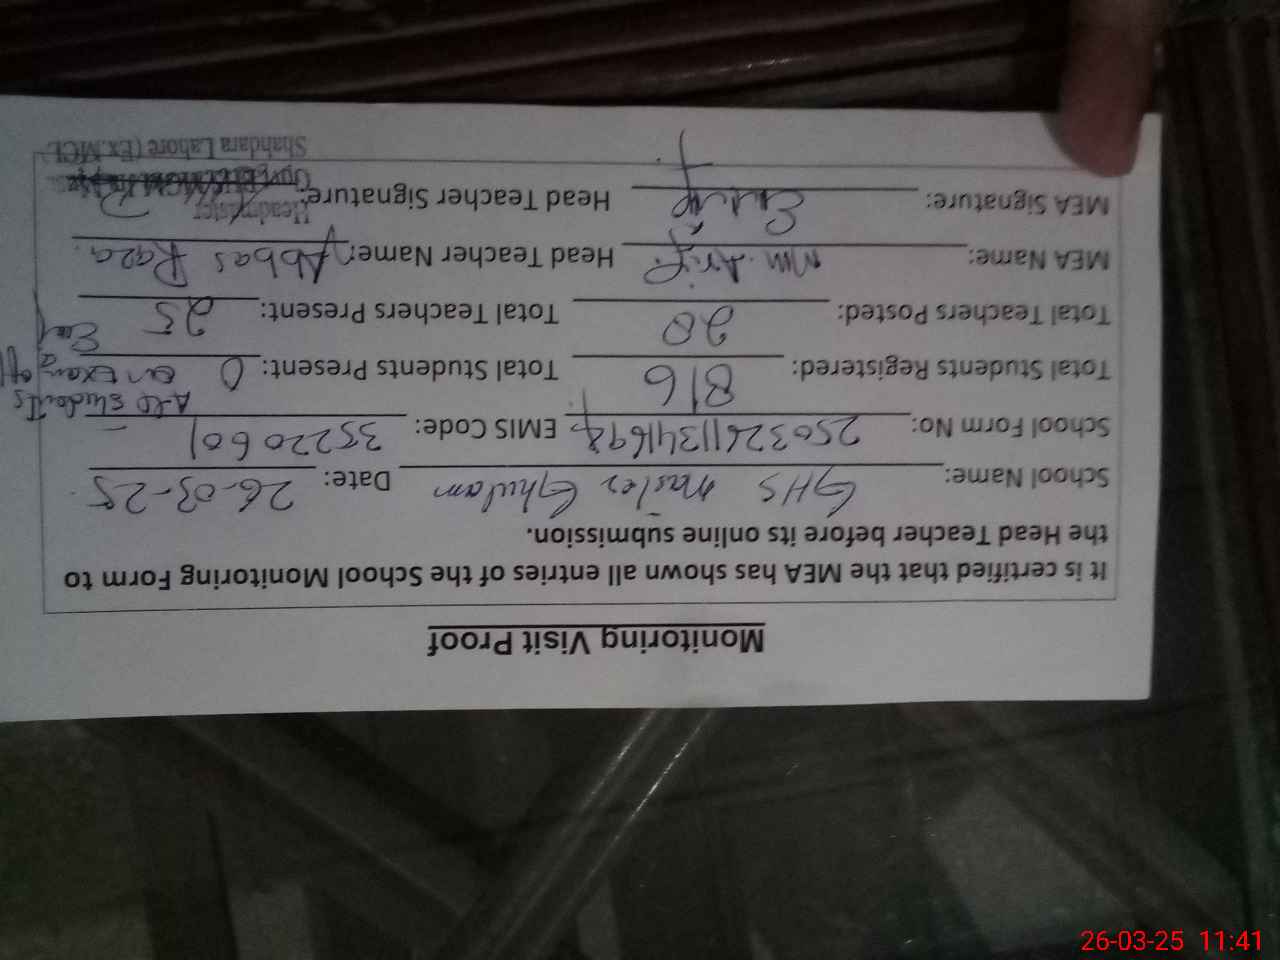 Monitoring Visit Proof
It is certified that the MEA has shown all entries of the School Monitoring Form to
the Head Teacher before its online submission.
School Name: GHS Master Ghulam Date: 26-03-25
School Form No: EMIS Code: 35220601
All students
Total Students Registered: 816 Total Students Present: 0 on Exam
Total Teachers Posted: Total Teachers Present: 25
MEA Name: M. Arif Head Teacher Name: Abbas Raza
MEA Signature: Head Teacher Signature:
Headmaster
Shahdara Lahore (Ex.MCL
26-03-25 11:41